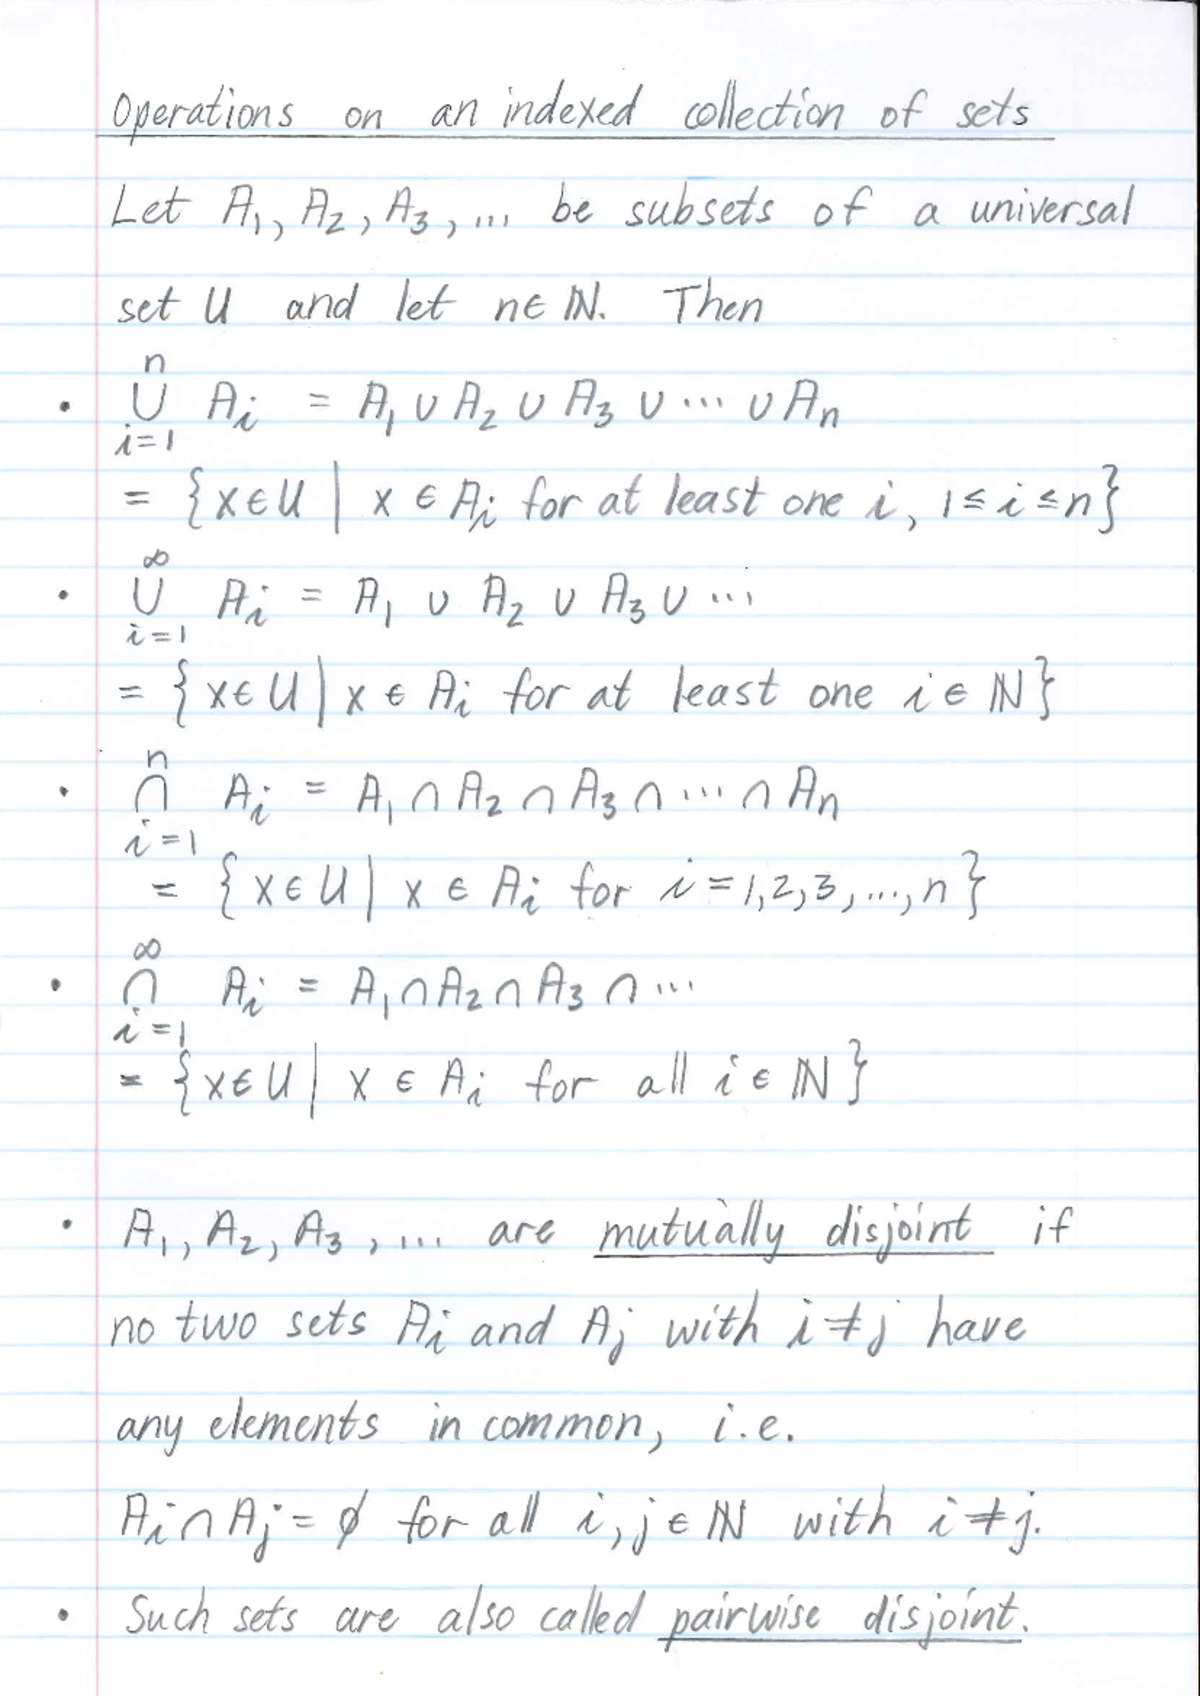 Operations on an indexed collection of sets
Let A₁, A₂, A₃, ... be subsets of a universal
set U and let n∈ℕ. Then
• ⋃ᵢ₌₁ⁿ Aᵢ = A₁ ∪ A₂ ∪ A₃ ∪ ... ∪ Aₙ
= {x∈U | x ∈ Aᵢ for at least one i, 1≤i≤n}
• ⋃ᵢ₌₁^∞ Aᵢ = A₁ ∪ A₂ ∪ A₃ ∪ ...
= {x∈U | x ∈ Aᵢ for at least one i ∈ ℕ}
• ⋂ᵢ₌₁ⁿ Aᵢ = A₁ ∩ A₂ ∩ A₃ ∩ ... ∩ Aₙ
= {x∈U | x ∈ Aᵢ for i=1,2,3,...,n}
• ⋂ᵢ₌₁^∞ Aᵢ = A₁ ∩ A₂ ∩ A₃ ∩ ...
= {x∈U | x ∈ Aᵢ for all i ∈ ℕ}
• A₁, A₂, A₃, ... are mutually disjoint if
no two sets Aᵢ and Aⱼ with i≠j have
any elements in common, i.e.
Aᵢ∩Aⱼ = ∅ for all i,j∈ℕ with i≠j.
• Such sets are also called pairwise disjoint.